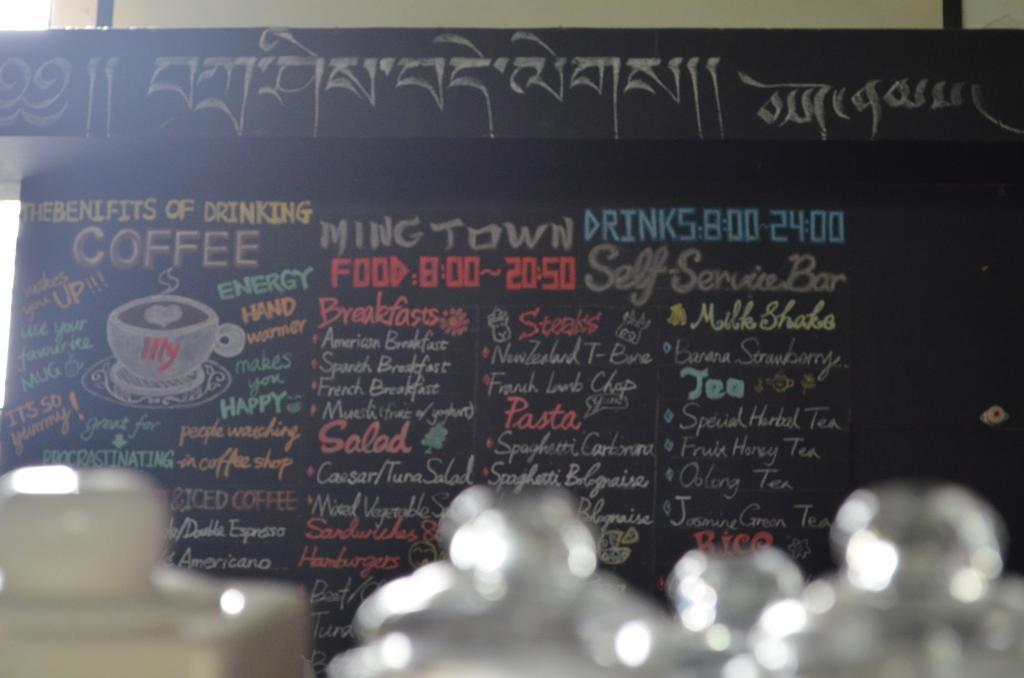 ༄༅།། བཀྲ་ཤིས་བདེ་ལེགས།།
THE BENIFITS OF DRINKING
COFFEE
makes you UP!!!
use your favourite MUG
IT'S SO yummy!
great for
PROCRASTINATING
ENERGY
HAND warmer
makes you HAPPY
people watching
in coffee shop
illy
ICED COFFEE
Double Espresso
Americano
MING TOWN
FOOD:8:00~20:50
DRINKS:8:00-24:00
Self-Service Bar
Breakfasts
American Breakfast
Spanish Breakfast
French Breakfast
Muesli (fruit w/ yoghurt)
Salad
Caesar/Tuna Salad
Mixed Vegetable
Sandwiches &
Hamburgers
Beef
Tuna
Steaks
New Zealand T-Bone
French Lamb Chop
Pasta
Spaghetti Carbonara
Spaghetti Bolognaise
Bolognaise
Milk Shake
Banana Strawberry..
Tea
Special Herbal Tea
Fruit Honey Tea
Oolong Tea
Jasmine Green Tea
Rice